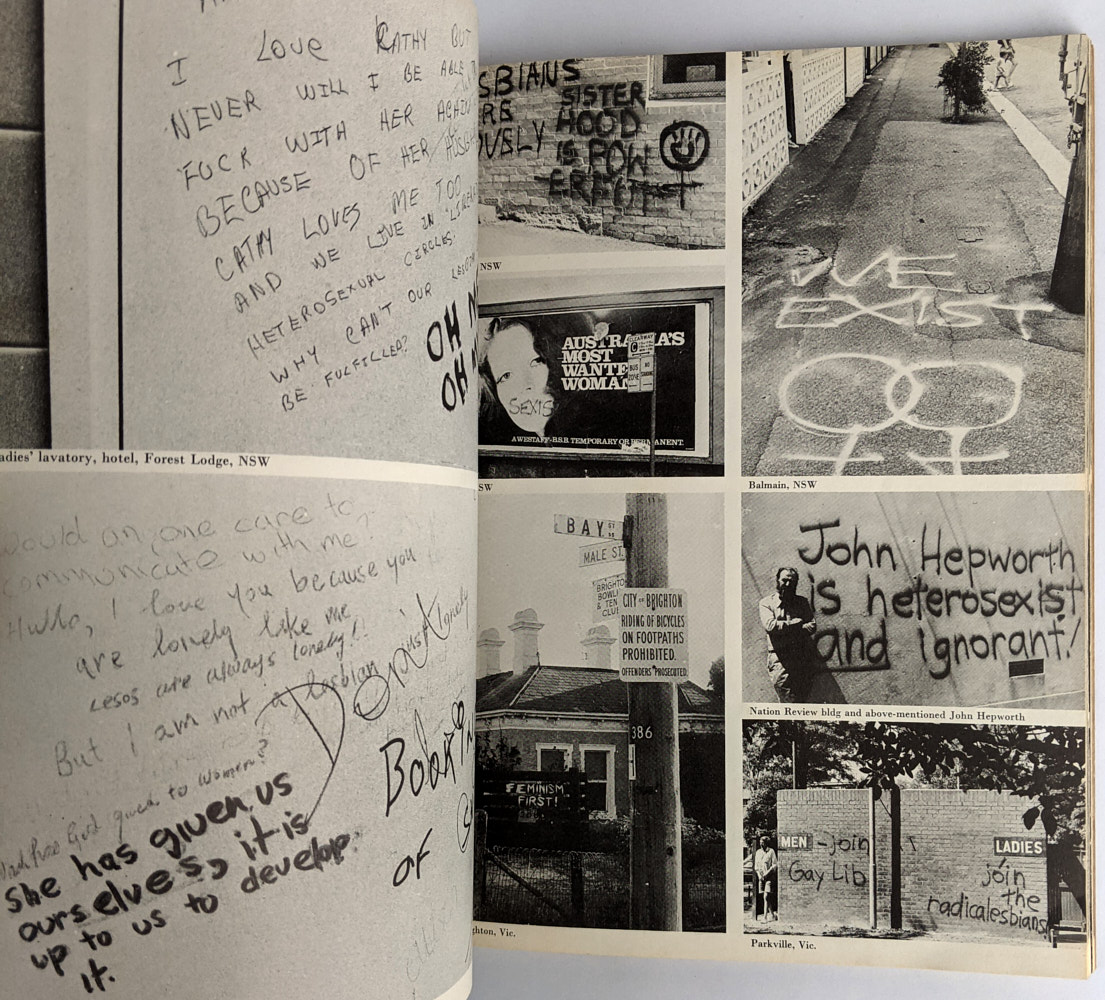 I LOVE KATHY BUT
NEVER WILL I BE ABLE
FUCK WITH HER
BECAUSE OF HER
CATHY LOVES ME TOO
AND WE LIVE IN
HETEROSEXUAL CIRCLES.
WHY CAN'T OUR
BE FULFILLED?
OH
OH
adies' lavatory, hotel, Forest Lodge, NSW
would anyone care to
communicate with me
Hullo, I love you because you
are lonely like me
Lesos are always lonely!!
But I am not a lesbian just lonely
given to women?
she has given us
ourselves, it is
up to us to develop
it.
Don't
Book
of
SBIANS
RE
OUSLY
SISTER
HOOD
IS POW
ERFUL
NSW
AUSTRA A'S
MOST
WANTE
WOMA
SEXIS
BUS
ZONE
NO
A WESTAFF-B.S.B. TEMPORARY OR PERMANENT.
SW
BAY ST
MALE ST.
BRIGHTO
BOWL
& TEN
CLU
CITY OF BRIGHTON
RIDING OF BICYCLES
ON FOOTPATHS
PROHIBITED.
OFFENDERS PROSECUTED.
386
FEMINISM
FIRST!
ghton, Vic.
WE
EXIST
Balmain, NSW
John Hepworth
is heterosexist
and ignorant!
Nation Review bldg and above-mentioned John Hepworth
MEN - join
Gay Lib
LADIES
join
the
radicalesbians!
Parkville, Vic.